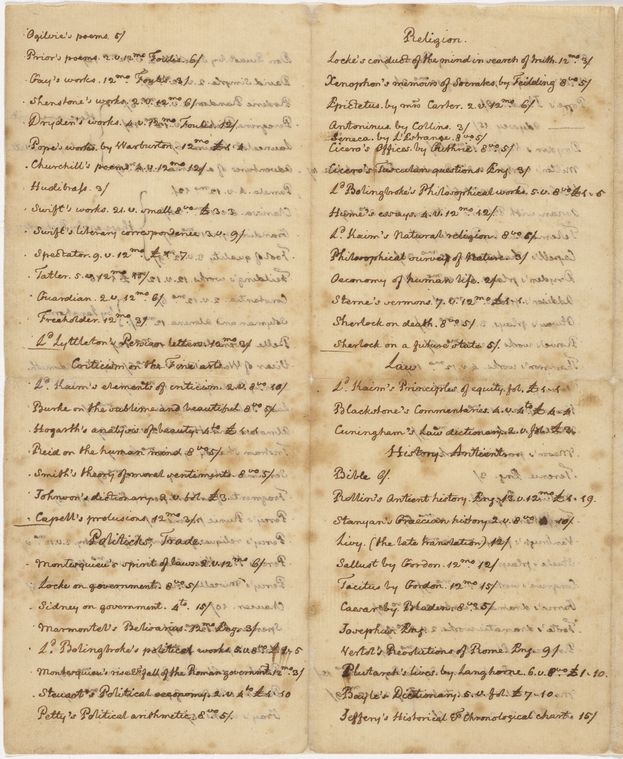 Ogilvie's poems. 5/
Prior's poems. 2.v. 12mo Foulis. 6/
Gay's works. 12mo Foulis. 3/
Shenstone's works. 2.v. 12mo 6/
Dryden's works. 4.v. 12mo Foulis. 12/
Pope's works. by Warburton. 12mo £1-4
Churchill's poems. 4.v. 12mo 12/
Hudibrass. 3/
Swift's works. 21.v. small 8vo £3-3
Swift's literary correspondence. 3.v. 9/
Spectator. 9.v. 12mo £1-7
Tatler. 5.v. 12mo 15/
Guardian. 2.v. 12mo 6/
Freeholder. 12mo 3/
Ld. Lyttleton's Persian letters. 12mo 3/
Criticism on the Fine arts
Ld. Kaim's elements of criticism. 2.v. 8vo 10/
Burke on the sublime and beautiful. 8vo 5/
Hogarth's analysis of beauty. 4to £1-1
Reid on the human mind. 8vo 5/
Smith's theory of moral sentiments. 8vo 5/
Johnson's dictionary. 2.v. fol. £3.
Capell's prolusions. 12mo 3/
Politicks, Trade.
Montesquieu's spirit of laws. 2.v. 12mo 6/
Locke on government. 8vo 5/
Sidney on government. 4to. 15/
Marmontel's Belisarius. 12mo Eng. 3/
Ld. Bolingbroke's political works. 5.v. 8vo £1-5
Montesquieu's rise & fall of the Roman governmt. 12mo 3/
Steuart's Political oeconomy. 2.v. 4to £1-10
Petty's Political arithmetic. 8vo 5/
Religion.
Locke's conduct of the mind in search of truth. 12mo 3/
Xenophon's memoirs of Socrates. by Feilding. 8vo 5/
Epictetus. by mrs Carter. 2.v. 12mo 6/
Antoninus. by Collins. 3/
Seneca. by L'Estrange. 8vo 5/
Cicero's Offices. by Guthrie. 8vo 5/
Cicero's Tusculan questions. Eng. 3/
Ld. Bolingbroke's Philosophical works. 5.v. 8vo £1-5
Hume's essays. 4.v. 12mo 12/
Ld. Kaim's Natural religion. 8vo 6/
Philosophical survey of Nature. 3/
Oeconomy of human life. 2/
Sterne's sermons. 7.v. 12mo £1-1
Sherlock on death. 8vo 5/
Sherlock on a future state. 5/
Law
Ld. Kaim's Principles of equity. fol. £1-1
Blackstone's Commentaries. 4.v. 4to £4-4
Cuningham's Law dictionary. 2.v. fol. £3.
History. Antient.
Bible 6/.
Rollin's Antient history. Eng. 13.v. 12mo £1-19
Stanyan's Graecian history. 2.v. 8vo 10/
Livy. (the late translation) 12/
Sallust by Gordon. 12mo 12/
Tacitus by Gordon. 12mo 15/
Caesar by Bladen. 8vo 5/
Josephus. Eng.
Vertot's Revolutions of Rome. Eng. 9/
Plutarch's lives. by Langhorne. 6.v. 8vo £1-10.
Bayle's Dictionary. 5.v. fol. £7-10.
Jeffery's Historical & Chronological chart. 15/